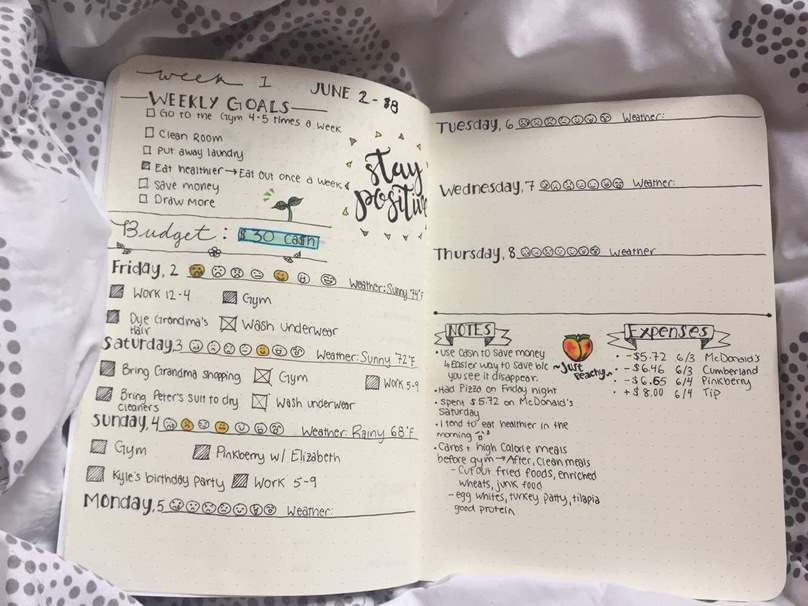 week 1
JUNE 2-8
WEEKLY GOALS
Go to the Gym 4-5 times a week
Clean Room
Put away laundry
Eat healthier → Eat out once a week
Save money
Draw More
stay
positive
Budget: $30 cash
Friday, 2
Weather: Sunny 74°F
Work 12-4
Gym
Dye Grandma's
Hair
Wash underwear
Saturday, 3
Weather: Sunny 72°F
Bring Grandma shopping
Gym
Work 5-9
Bring Peter's suit to dry
cleaners
Wash underwear
Sunday, 4
Weather: Rainy 68°F
Gym
Pinkberry w/ Elizabeth
Kyle's birthday party
Work 5-9
Monday, 5
Weather:
Tuesday, 6
Weather:
Wednesday, 7
Weather:
Thursday, 8
Weather
NOTES
• use cash to save money
↳ Easier way to save b/c
you see it disappear.
• Had Pizza on Friday night
• Spent $5.72 on McDonald's
Saturday
• I tend to eat healthier in the
morning
• Carbs + high calorie meals
before gym → After, clean meals
- Cut out fried foods, enriched
wheats, junk food
- egg whites, turkey patty, tilapia
good protein
~Just
Peachy~
Expenses
• -$5.72 6/3 McDonald's
• -$6.46 6/3 Cumberland
• -$6.65 6/4 Pinkberry
• +$8.00 6/4 Tip